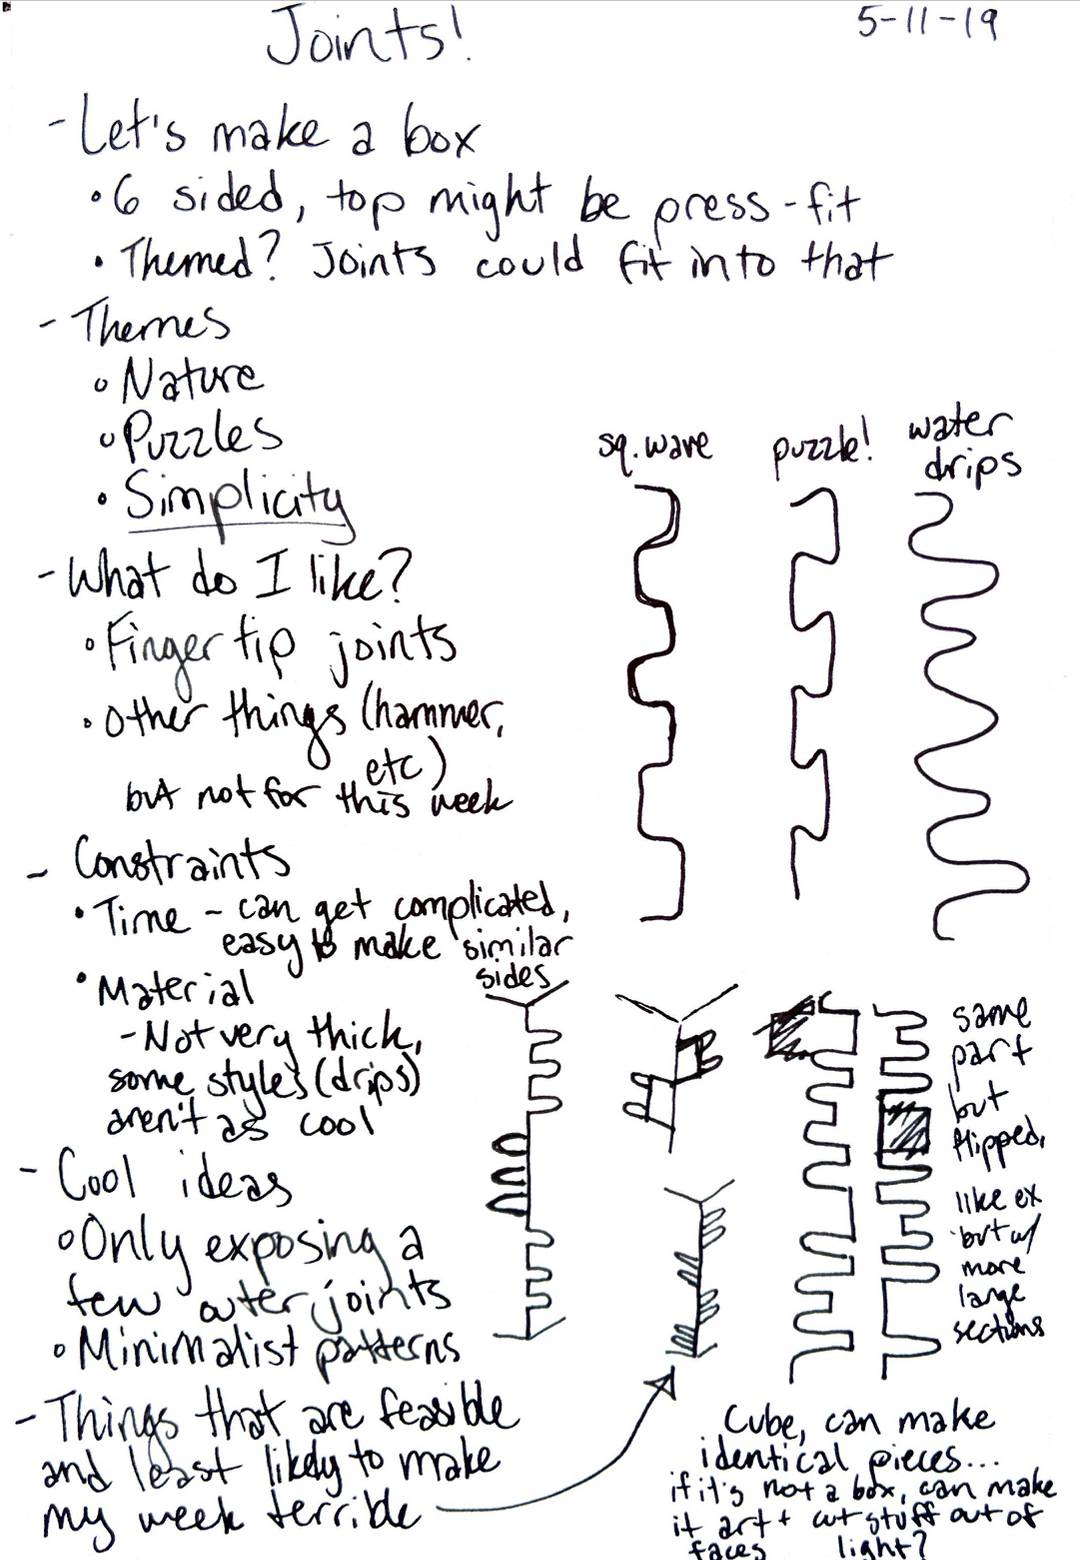 Joints!
5-11-19
- Let's make a box
• 6 sided, top might be press-fit
• Themed? Joints could fit into that
- Themes
• Nature
• Puzzles
• Simplicity
- What do I like?
• Finger tip joints
• Other things (hammer,
etc)
but not for this week
- Constraints
• Time - can get complicated,
easy to make similar
sides
• Material
- Not very thick,
some styles (drips)
aren't as cool
- Cool ideas
• Only exposing a
few outer joints
• Minimalist patterns
- Things that are feasible
and least likely to make
my week terrible
sq. wave
puzzle!
water
drips
same
part
but
flipped,
like ex
but w/
more
large
sections
Cube, can make
identical pieces...
if it's not a box, can make
it art + cut stuff out of
faces light?